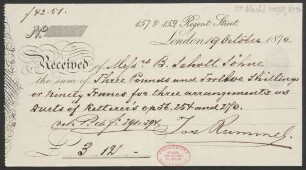 157 & 159 Regent Street
London 19 October 1870
No
Received of Messrs B. Schott Söhne
the sum of Three Pounds and Twelve Shillings
or Ninety Francs for three arrangements as
Duets of Ketterer's op. 56, 254 and 270.
Jos Rummel
£ 3 12/-